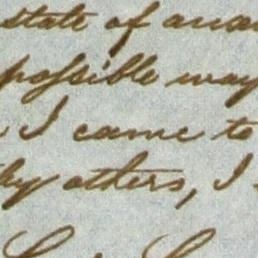 state of
possible way
I came to
by others, I